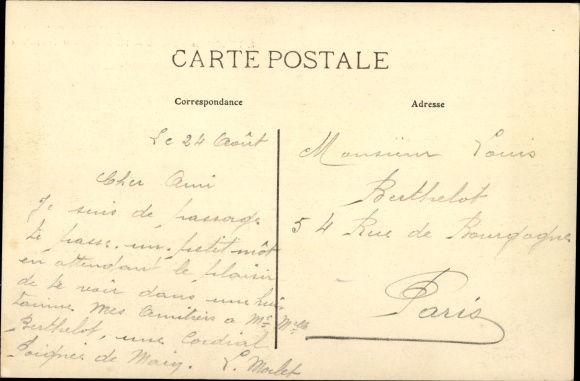 CARTE POSTALE
Correspondance
Adresse
Le 24 Août
Cher Ami
Je suis de passage
te passe un petit môt
en attendant le plaisir
de te voir dans une huis
taine Mes Amitiers a Mr Mme
Berthelot, une Cordial
Poignée de Main.
Monsieur Louis
Berthelot
54 Rue de Bourgogne
Paris